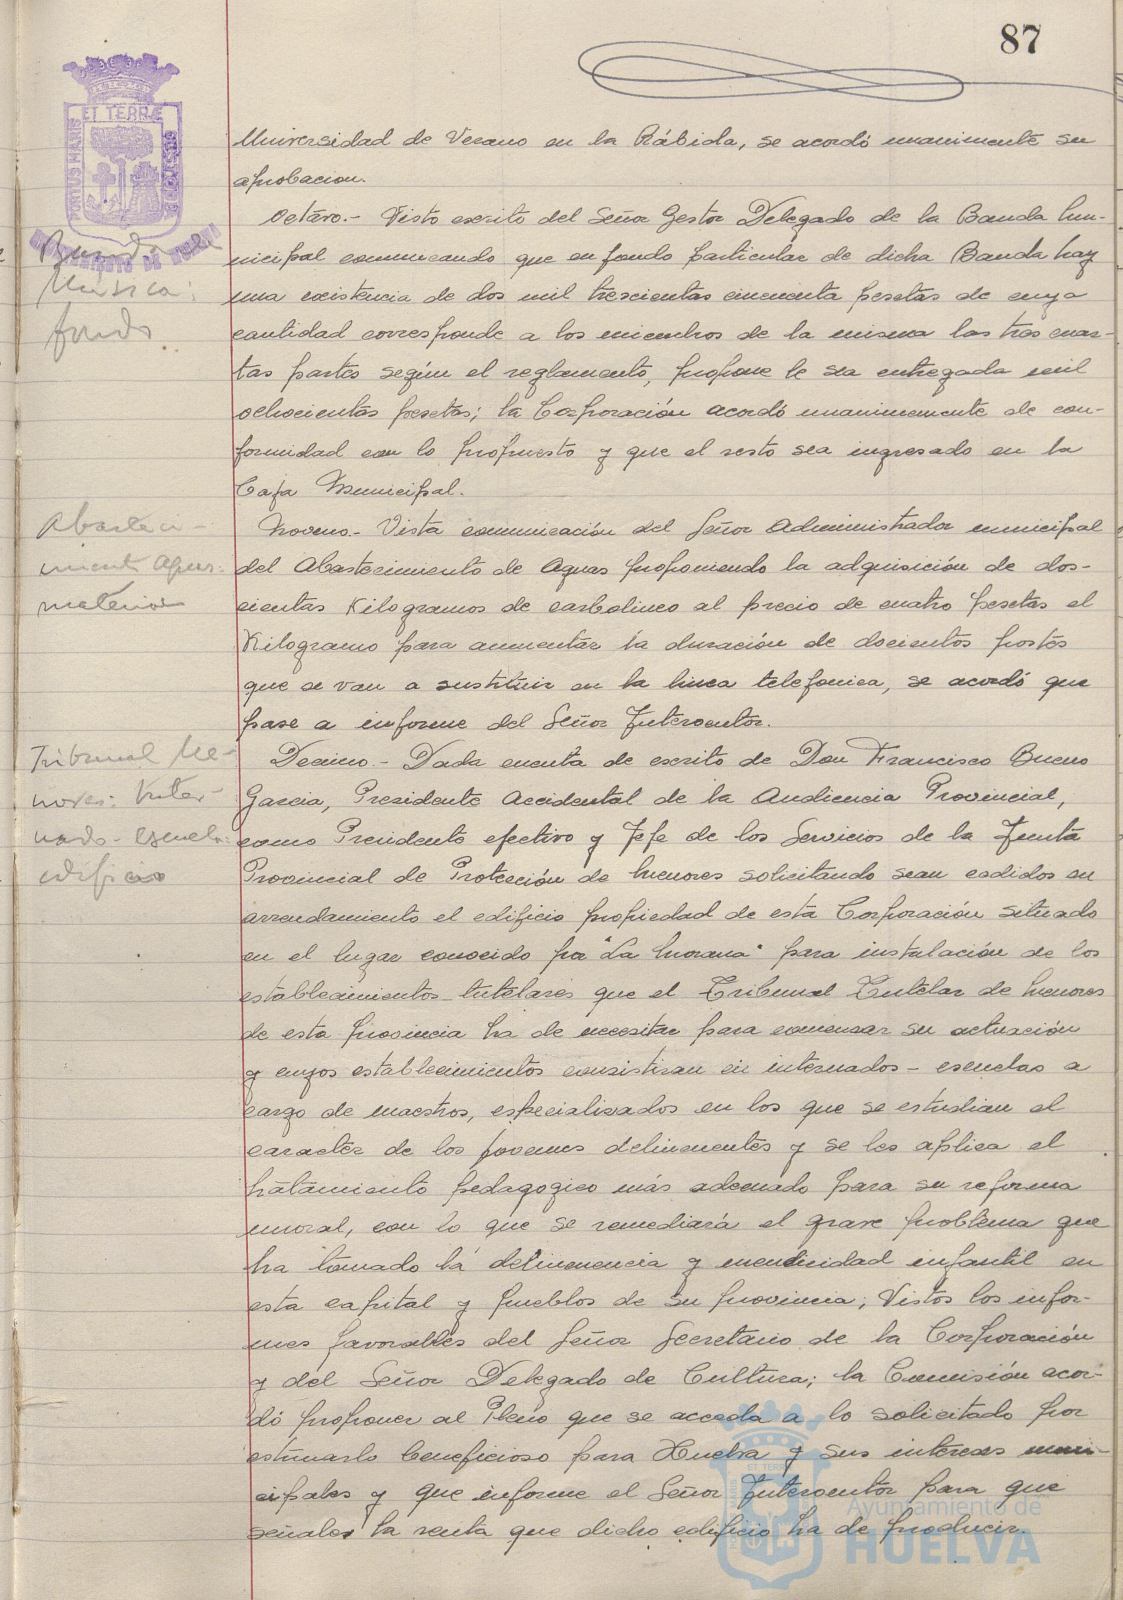 87
PORTUS MARIS
ET TERRÆ
Universidad de Verano en la Rábida, se acordó unanimente su
aprobacion.
Octavo.- Visto escrito del Señor Gestor Delegado de la Banda Mu-
nicipal comunicando que en fondo particular de dicha Banda hay
una existencia de dos mil trescientas cincuenta pesetas de cuya
cantidad corresponde a los miembros de la misma las tres cuar-
tas partes según el reglamento, propone le sea entregada mil
ochocientas pesetas; la Corporación acordó unanimemente de con-
formidad con lo propuesto y que el resto sea ingresado en la
Caja Municipal.
Banda de
Música:
fondo
Noveno.- Vista comunicación del Señor Administrador municipal
del Abastecimiento de Aguas proponiendo la adquisición de dos-
cientas Kilogramos de carbolineo al precio de cuatro pesetas el
Kilogramo para aumentar la duración de docientos postes
que se van a sustituir en la linea telefonica, se acordó que
pase a informe del Señor Interventor.
Abasteci-
miento Aguas:
material
Decimo.- Dada cuenta de escrito de Don Francisco Bueno
Garcia, Presidente Accidental de la Audiencia Provincial,
como Presidente efectivo y Jefe de los Servicios de la Junta
Provincial de Protección de Menores solicitando sean cedidos en
arrendamiento el edificio propiedad de esta Corporación situado
en el lugar conocido por "La Morana" para instalación de los
establecimientos tutelares que el Tribunal Tutelar de Menores
de esta provincia ha de necesitar para comenzar su actuación
y cuyos establecimientos consistiran en internados - escuelas a
cargo de maestros, especializados en los que se estudian el
caracter de los jovenes delincuentes y se les aplica el
tratamiento pedagogico más adecuado para su reforma
moral, con lo que se remediará el grave problema que
ha tomado la delincuencia y mendicidad infantil en
esta capital y pueblos de su provincia; Vistos los infor-
mes favorables del Señor Secretario de la Corporación
y del Señor Delegado de Cultura; la Comisión acor-
dó proponer al Pleno que se acceda a lo solicitado por
estimarlo beneficioso para Huelva y sus intereses muni-
cipales y que informe el Señor Interventor para que
señale la renta que dicho edificio ha de producir.
Tribunal Me-
nores: Inter-
nado-escuela:
edificio
Ayuntamiento de
HUELVA